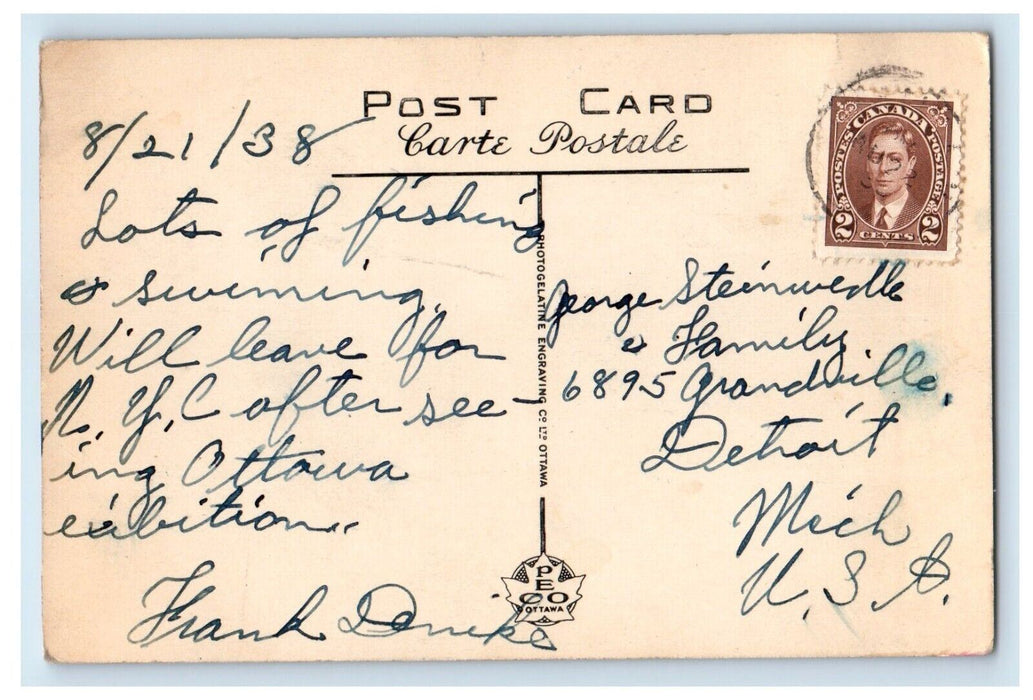 POST CARD
Carte Postale
8/21/38
Lots of fishing
& swiming.
Will leave for
N. Y. C after see-
ing Ottowa
exibition..
Frank
PHOTOGELATINE ENGRAVING Cº LTD OTTAWA
PECO
OTTAWA
POSTES CANADA POSTAGE
2 CENTS 2
George
& Family
6895 Grandville.
Detroit
Mich
U. S. A.